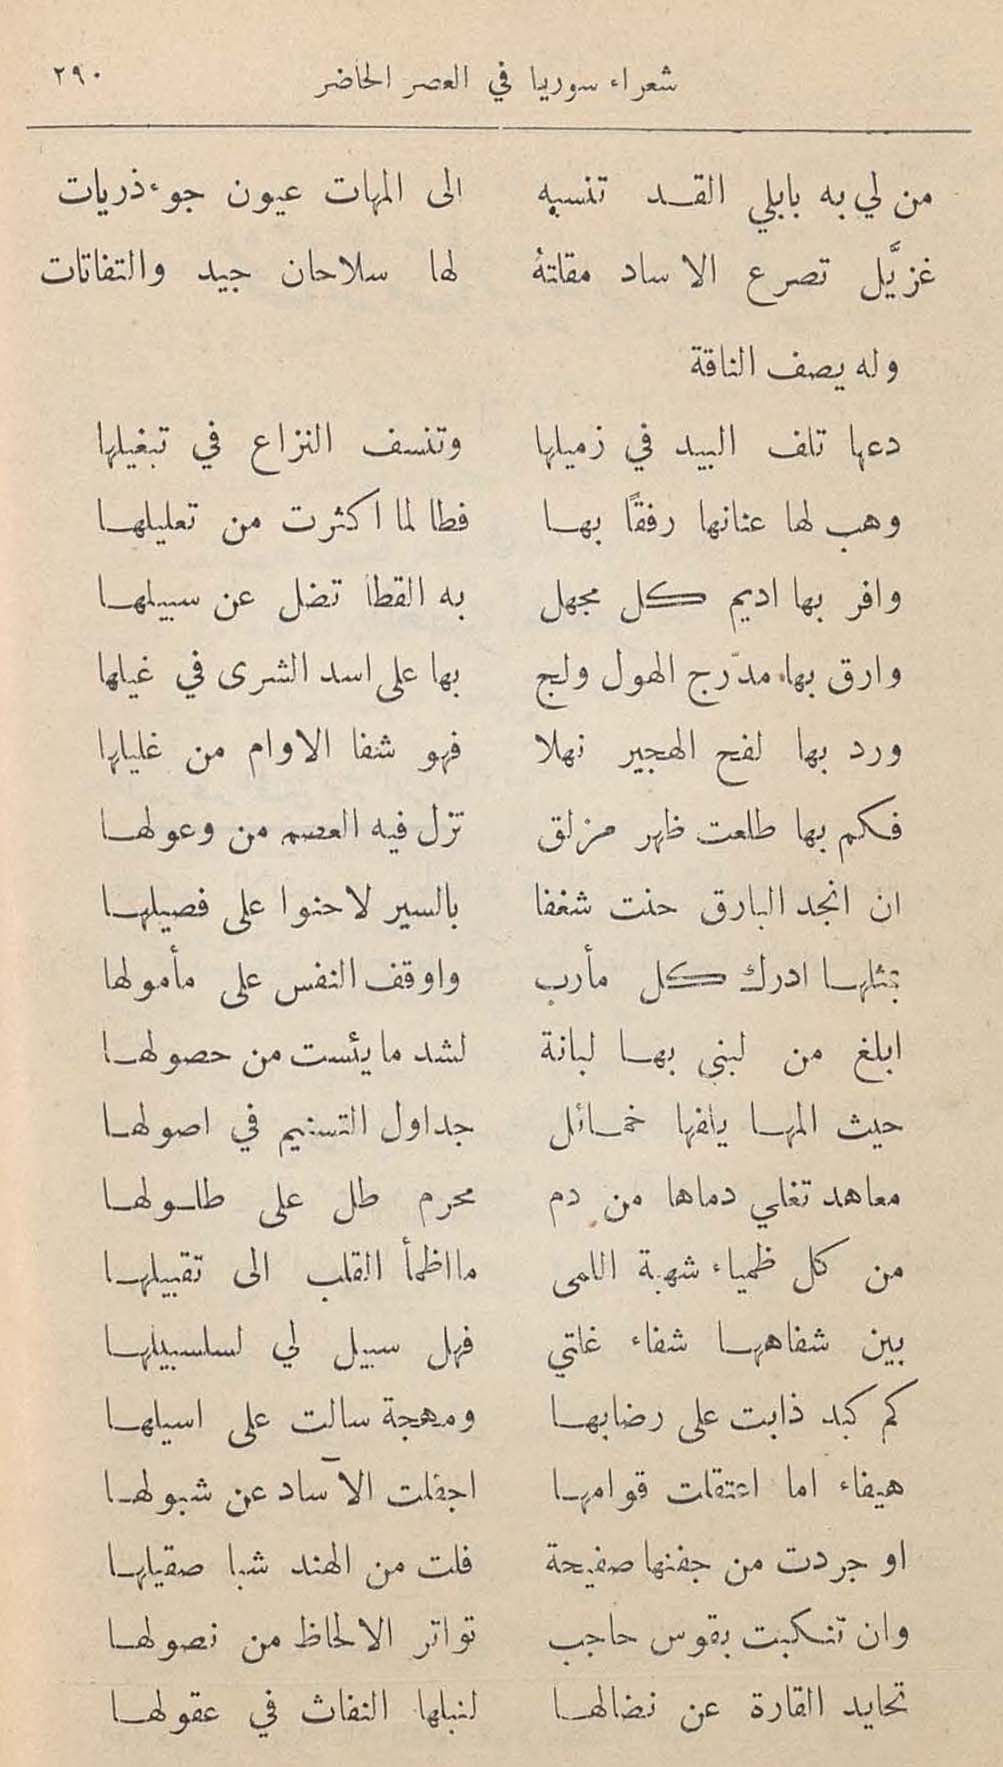 شعراء سوريا في العصر الحاضر ٢٩٠
من لي به بابلي القد تنسبه الى المهات عيون جوءذريات
غزيَّل تصرع الاساد مقلتهُ لها سلاحان جيد والتفاتات
وله يصف الناقة
دعها تلف البيد في زميلها وتنسف النزاع في تبغيلها
وهب لها عنانها رفقاً بها فطالما اكثرت من تعليلها
وافر بها اديم كل مجهل به القطا تضل عن سبيلها
وارق بها مدّرج الهول ولج بها على اسد الشرى في غيلها
ورد بها لفح الهجير نهلا فهو شفا الاوام من غليلها
فكم بها طلعت ظهر مزلق تزل فيه العصم من وعولها
ان انجد البارق حنت شغفا بالسير لاحنوا على فصيلها
بمثلها ادرك كل مأرب واوقف النفس على مأمولها
ابلغ من لبنى بها لبانة لشد ما يئست من حصولها
حيث المها يلفها خمائل جداول التسنيم في اصولها
معاهد تغلي دماها من دم محرم طل على طلولها
من كل ظمياء شهبة اللمى ما اظمأ القلب الى تقبيلها
بين شفاهها شفاء غلتي فهل سبيل لي لسلسبيلها
كم كبد ذابت على رضابها ومهجة سالت على اسيلها
هيفاء اما اعتقلت قوامها اجفلت الآساد عن شبولها
او جردت من جفنها صفيحة فلت من الهند شبا صقيلها
وان تنكبت بقوس حاجب تواتر الالحاظ من نصولها
تحايد القارة عن نضالها لنبلها النفاث في عقولها